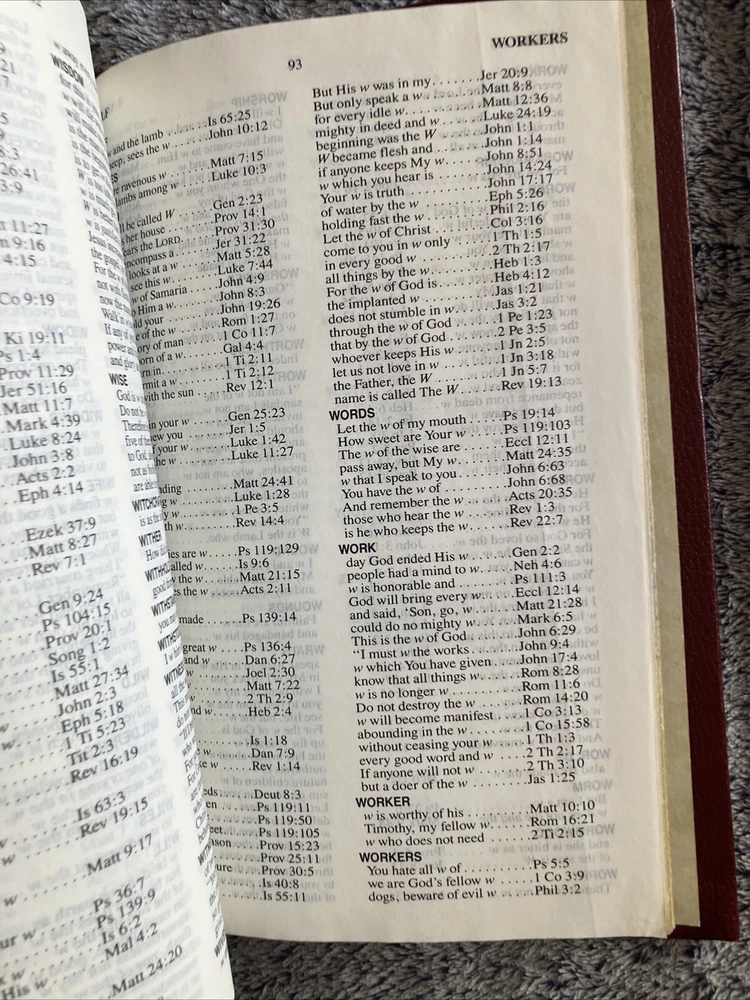 21
8:3
26:41
3:9
tt 11:27
m 9:16
4:15
Co 9:19
Ki 19:11
Ps 1:4
Prov 11:29
Jer 51:16
Matt 11:7
Mark 4:39
Luke 8:24
John 3:8
Acts 2:2
Eph 4:14
Ezek 37:9
Matt 8:27
Rev 7:1
Gen 9:24
Ps 104:15
Prov 20:1
Song 1:2
Is 55:1
Matt 27:34
John 2:3
Eph 5:18
1 Ti 5:23
Tit 2:3
Rev 16:19
Is 63:3
Rev 19:15
Matt 9:17
Ps 36:7
Ps 139:9
Is 6:2
Mal 4:2
Matt 24:20
WISDOM
WISE
WITCHC
WITHER
WITHH
WITHST
WITHST
WITNES
93
and the lamb ......Is 65:25
eep, sees the w .....John 10:12
ravenous w .....Matt 7:15
lambs among w .....Luke 10:3
be called W .....Gen 2:23
her house .....Prov 14:1
ears the LORD.....Prov 31:30
encompass a .....Jer 31:22
looks at a w .....Matt 5:28
see this w .....Luke 7:44
w of Samaria .....John 4:9
Him a w .....John 8:3
ld your .....John 19:26
e of the w .....Rom 1:27
ory of man .....1 Co 11:7
orn of a w.....Gal 4:4
rn in.....1 Ti 2:11
rmit a w .....1 Ti 2:12
with the sun .....Rev 12:1
in your w .....Gen 25:23
new you .....Jer 1:5
f your w .....Luke 1:42
he w .....Luke 11:27
nding .....Matt 24:41
g w .....Luke 1:28
y w .....1 Pe 3:5
th w .....Rev 14:4
ies are w .....Ps 119:129
alled w .....Is 9:6
v the w .....Matt 21:15
es the w .....Acts 2:11
made .....Ps 139:14
great w .....Ps 136:4
and w .....Dan 6:27
Joel 2:30
Matt 7:22
2 Th 2:9
nd w .....Heb 2:4
Is 1:18
e w .....Dan 7:9
ke w .....Rev 1:14
eeds .....Deut 8:3
en .....Ps 119:11
Ps 119:50
eet .....Ps 119:105
ason .....Prov 15:23
Prov 25:11
ure .....Prov 30:5
Is 40:8
Is 55:11
WORKERS
But His w was in my.......Jer 20:9
But only speak a w .......Matt 8:8
for every idle w.......Matt 12:36
mighty in deed and w .....Luke 24:19
beginning was the W .......John 1:1
W became flesh and .......John 1:14
if anyone keeps My w .......John 8:51
w which you hear is .......John 14:24
Your w is truth .......John 17:17
of water by the w .......Eph 5:26
holding fast the w .......Phil 2:16
Let the w of Christ .......Col 3:16
come to you in w only .....1 Th 1:5
in every good w .......2 Th 2:17
all things by the w.......Heb 1:3
For the w of God is.......Heb 4:12
the implanted w .......Jas 1:21
does not stumble in w.......Jas 3:2
through the w of God .....1 Pe 1:23
that by the w of God .....2 Pe 3:5
whoever keeps His w .....1 Jn 2:5
let us not love in w .....1 Jn 3:18
the Father, the W .......1 Jn 5:7
name is called The W .......Rev 19:13
WORDS
Let the w of my mouth .....Ps 19:14
How sweet are Your w .....Ps 119:103
The w of the wise are .....Eccl 12:11
pass away, but My w.......Matt 24:35
w that I speak to you .......John 6:63
You have the w of .......John 6:68
And remember the w .......Acts 20:35
those who hear the w .......Rev 1:3
is he who keeps the w.......Rev 22:7
WORK
day God ended His w .......Gen 2:2
people had a mind to w .......Neh 4:6
w is honorable and .......Ps 111:3
God will bring every w.......Eccl 12:14
and said, ‘Son, go, w .......Matt 21:28
could do no mighty w .......Mark 6:5
This is the w of God .......John 6:29
“I must w the works.......John 9:4
w which You have given.....John 17:4
know that all things w .......Rom 8:28
w is no longer w .......Rom 11:6
Do not destroy the w .......Rom 14:20
w will become manifest .....1 Co 3:13
abounding in the w .......1 Co 15:58
without ceasing your w .....1 Th 1:3
every good word and w .....2 Th 2:17
If anyone will not w .......2 Th 3:10
but a doer of the w .......Jas 1:25
WORKER
w is worthy of his .......Matt 10:10
Timothy, my fellow w.......Rom 16:21
w who does not need .......2 Ti 2:15
WORKERS
You hate all w of .......Ps 5:5
we are God’s fellow w .....1 Co 3:9
dogs, beware of evil w .....Phil 3:2